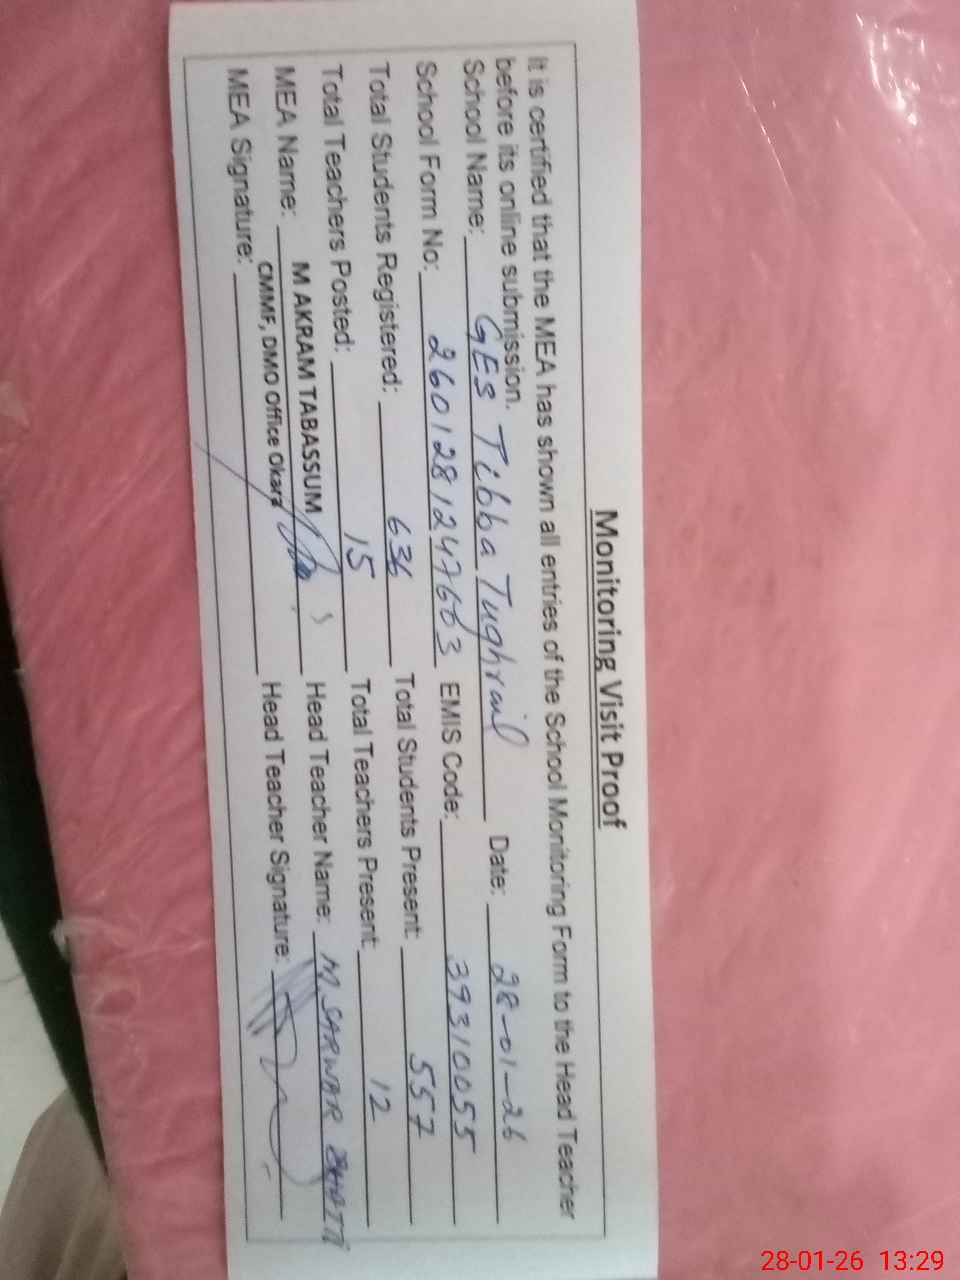 Monitoring Visit Proof
It is certified that the MEA has shown all entries of the School Monitoring Form to the Head Teacher
before its online submission.
School Name: GES Tibba Tughrail Date: 28-01-26
School Form No: 2601281247603 EMIS Code: 39310055
Total Students Registered: 636 Total Students Present: 557
Total Teachers Posted: 15 Total Teachers Present: 12
MEA Name: M AKRAM TABASSUM Head Teacher Name: M. SARWAR BHATTI
CMMF, DMO Office Okara
MEA Signature: Head Teacher Signature:
28-01-26 13:29